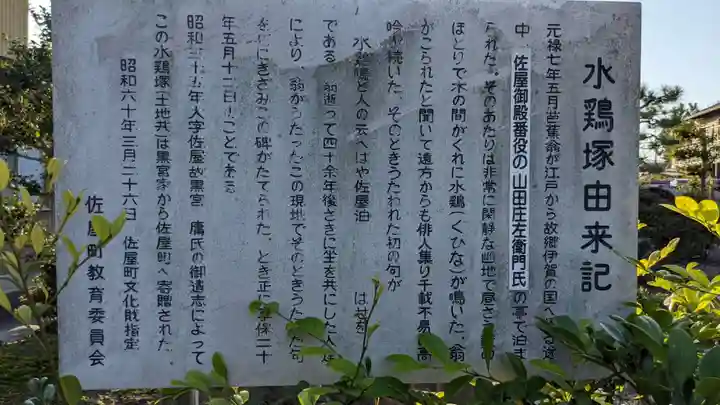 水鶏塚由来記
元禄七年五月芭蕉翁が江戸から故郷伊賀の国へ る途
中、佐屋御殿番役の山田庄左衛門氏の亭で泊ま
られた。そのあたりは非常に閑静な幽地で昼さ の
ほとりで木の間がくれに水鶏(くひな)が鳴いた。翁
がこられたと聞いて遠方からも俳人集り千載不易 高
吟が続いた。そのときうたわれた初の句が
水鶏鳴と人の云へはや佐屋泊 はせを
である。翁逝って四十余年後さきに坐を共にした人
により、翁がうたったこの現地でそのときうたった句
を にきざみこの碑がたてられた。とき正に享保二十
年五月十二日のことである。
昭和三十五年八字佐屋故黒宮 氏の御遺志によって
この水鶏塚(土地共)は黒宮家から佐屋町へ寄贈された。
昭和六十年三月二十六日 佐屋町文化財指定
佐屋町教育委員会